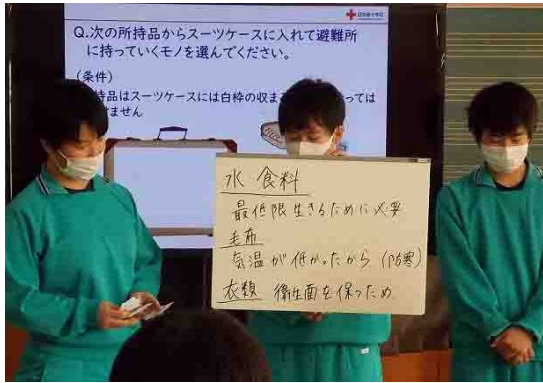 日本赤十字社
Q.次の所持品からスーツケースに入れて避難所
に持っていくモノを選んでください。
(条件)
持品はスーツケースには白枠の収ま
っては
ません
水 食料
最低限生きるために必要
毛布
気温が低かったから(防寒)
衣類 衛生面を保つため